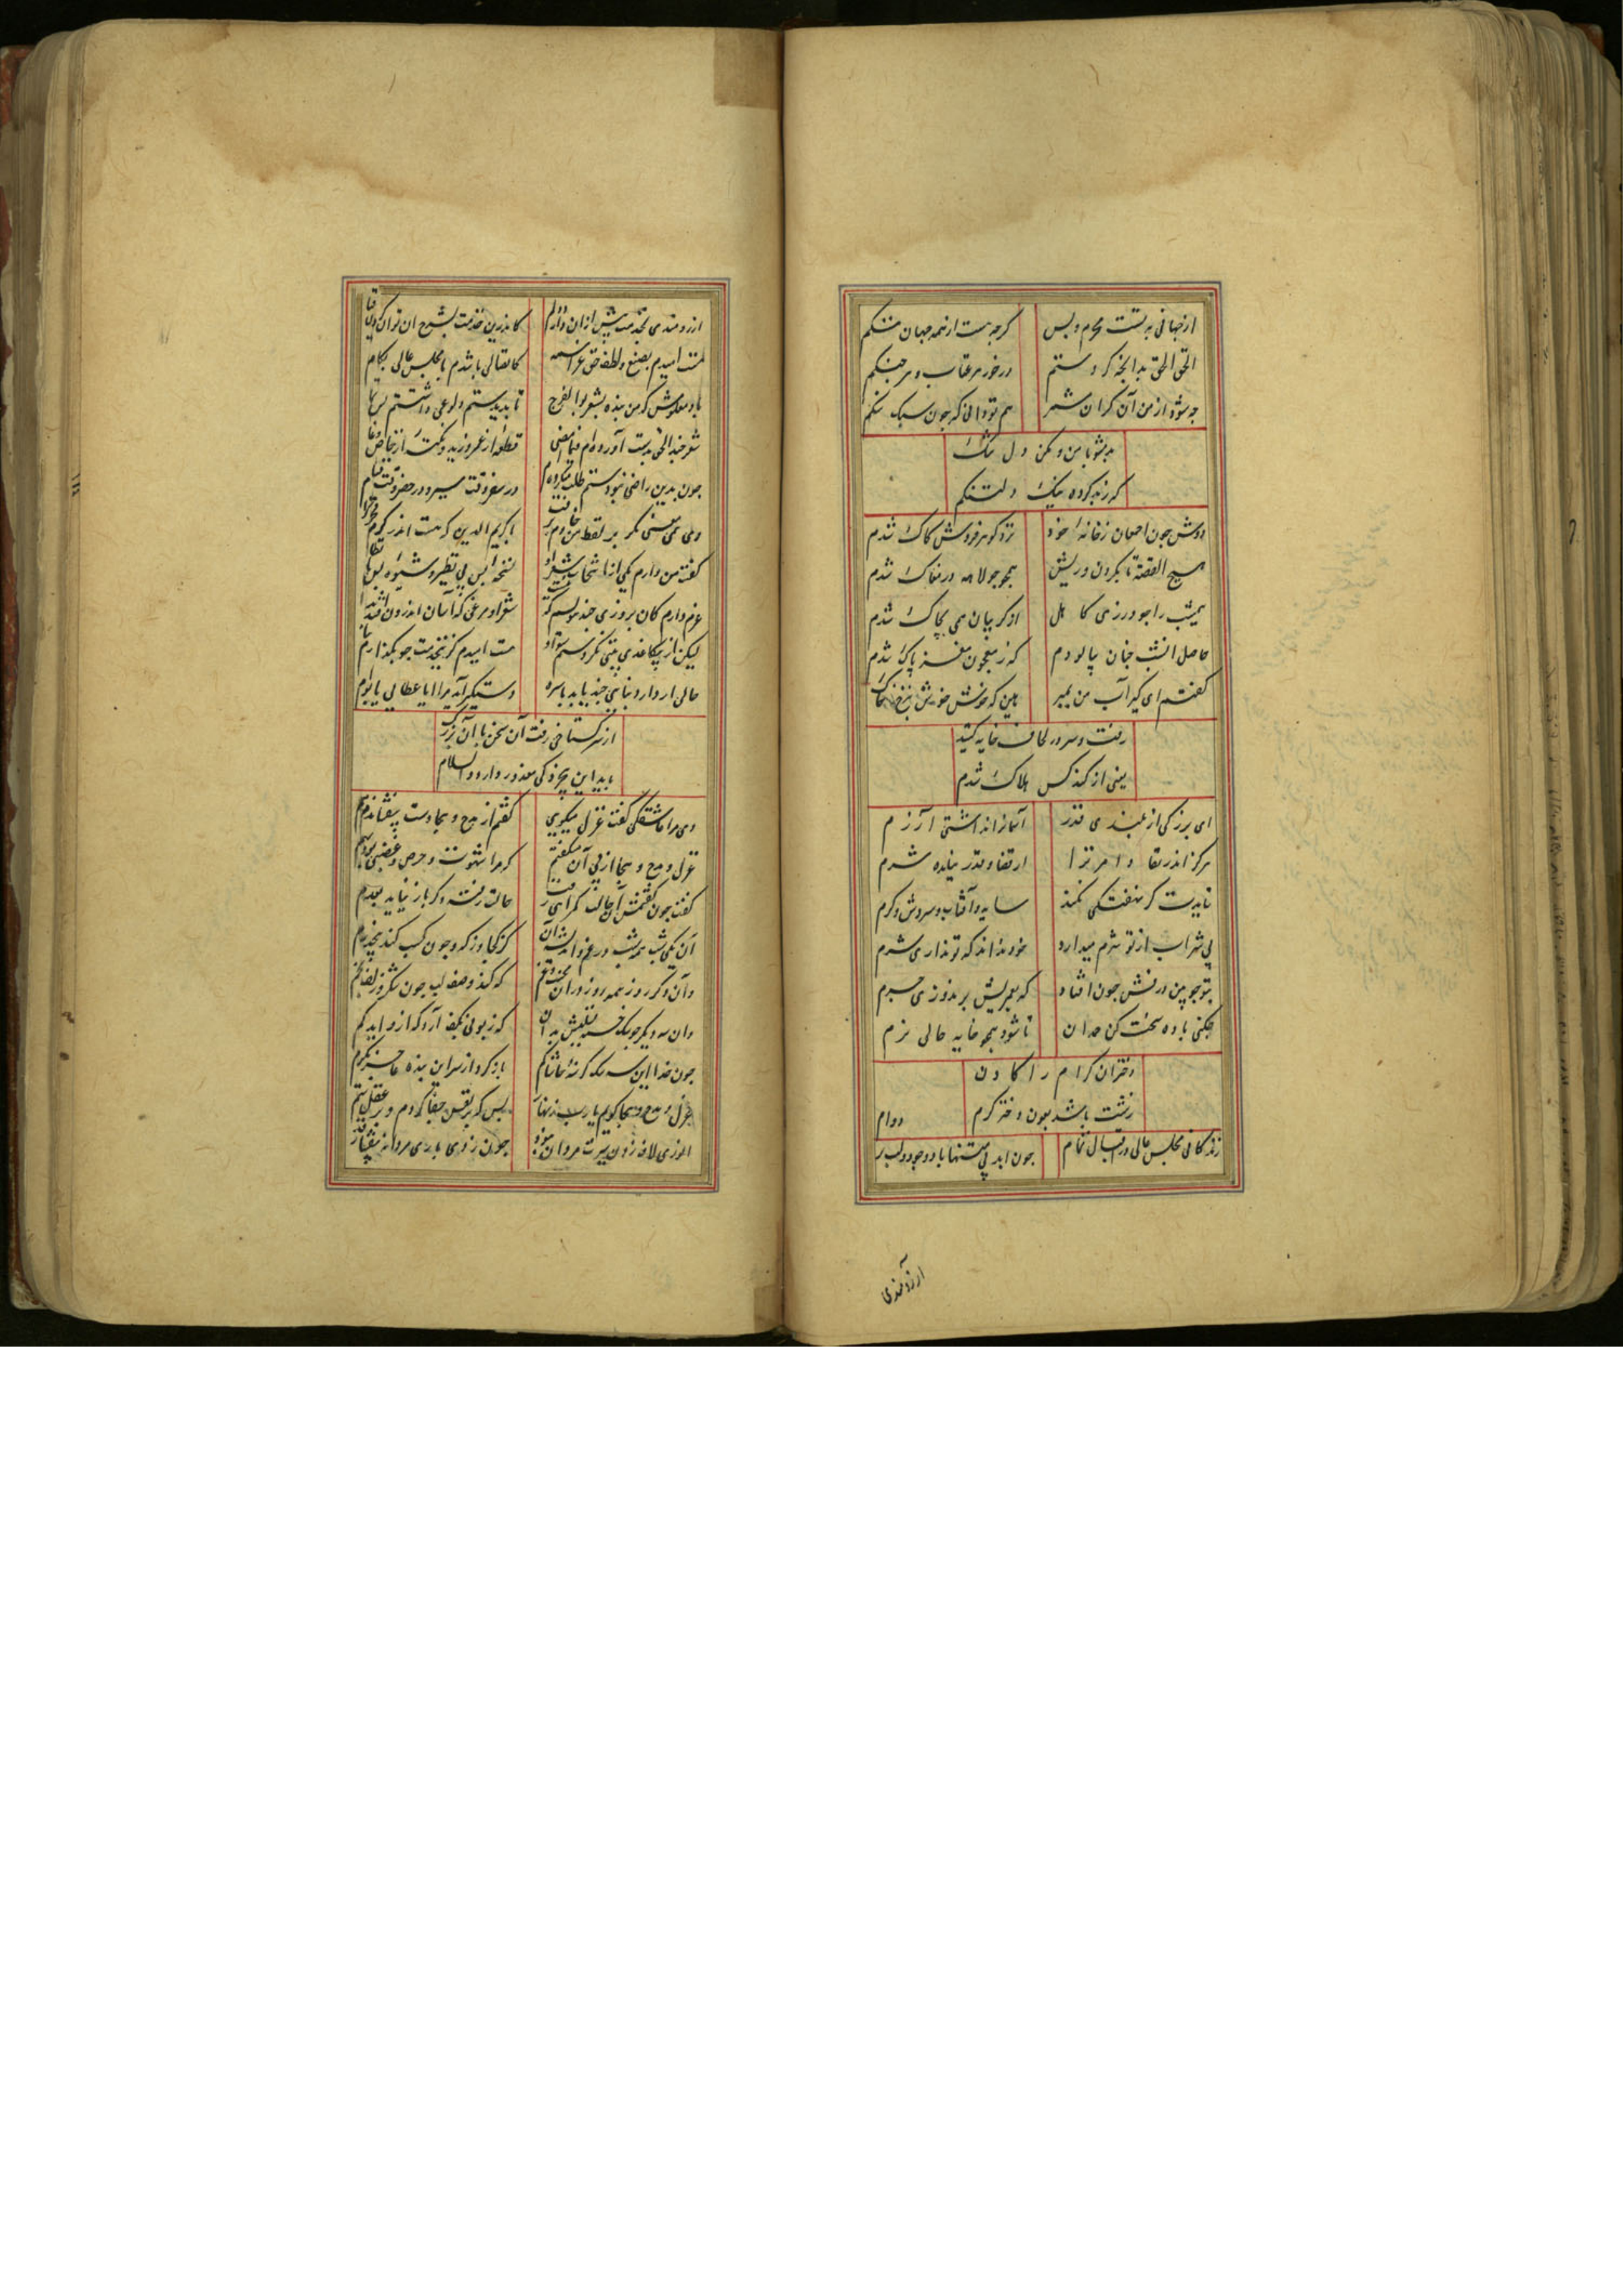 از جهانی به تست محرم و بس گرچه هست از همه جهان ننگم
الحق الحق بدانچه کردستم در خور هر عتاب و هر جنگم
چه شود از من آن گران مشمر هم تو دانی که چون سبک سنگم
مشو با من و مکن دل تنگ
که زبد کرده نیک دلتنگم
دوش چون احمقان ز خانهٔ خود نزد گوهر فروش کاک شدم
القصه تا بگردن و ریش همچو جولاهه در مغاک شدم
همه شب را چو درزی کاهل او گریبان همی و چاک شدم
حاصل انشب چنان بپالودم که ز مغز پاک شدم
گفتم ای آب من بمبر
رفت و سر در لحاف خایه کشید
یعنی از کندکس هلاک شدم
ای بزرگی از بلندی قدر آسمان را نداشتی آزرم
هرگز اندر بقا و امر ترا ارتفاع قدر ندیده شرم
تا بدیدت کر نهفتگی نکند سایه و آفتاب و سردش و گرم
بی شراب از تو شرم میدارد خود نداند که تو نداری شرم
که بعمریش بر ندوزی چرم
باده سخت کن حمدان تا شود همچو خایه حالی نرم
دختران کرام را کادن
زشت باشد بعون دختر کرم
دوام
زندگانی مجلس عالی در اقبال تمام چون ابد بی منتها باد و چو دولت بر
آرزومندی
آرزومندی بخدمت بیش از آن دارد دلم کاندرین خدمت بشرح آن توان کردن قیام
هست امیدم بصنع و لطف حق عز اسمه کاتصالی باشدم با مجلس عالی بکام
باد معلومش که من بنده بشعر بوالفرج تا بدیدستم ولوعی داشتستم بس تمام
شعر چند الحق بدست آورده‌ام فیما مضی قطعه از عمرو و زید و نکته از خاص و عام
چون بدین راضی نبودستم طلب میکرده‌ام در سفر وقت مسیر و در حضر وقت مقام
دی همی معنی مگر بر لفظ من خادم برفت با کریم الدین که هست اندر کرم فخر کرام
گفت من دارم یکی از انتخاب شعر او نسخه بس بی نظیر و شیوه بس با نظام
عزم دارم کان بروزی چند بنویسم که شعر او مرغی که آسان اندر آن افتد بدام
لیکن از بیکاغدی بیتی نکردستم سواد هست امیدم کز بخدمت چو بگذارم پیام
حالی ار دارد بتاهی چند باید باسره دستگیر آید مرا ایا عطا یا بوام
از سر گستاخی رفت آن سخن با آن بزرگ
باید این بیخردکی معذور دارد والسلام
دی مرا عاشقکی گفت غزل میگویی گفتم از مدح و هجا دست بیفشاندم
گفت چون گفتمش آن حالت گمراهی رفت حالت رفته دگر باز نیاید ز عدم
غزل و مدح و هجا از پی آن میگفتم که مرا شهوت و حرص و غضبی بود بهم
آن یکی شب همه شب در غم و اندیشه آن کز کجا وز که و چون کسب کند پنج درم
وان دگر روز همه روز در آن محنت و غم که کند وصف لب چون شکر و زلف بخم
وان سه دیگر چو سگ خسته تسلیش بدان که زبونی بکف آرد که ازو آید کم
چون خدا این سه سگ گرسنه را حاشاکم باز کرد از سر این بنده عاجز بکرم
غزل و مدح و هجا گویم یارب زنهار بس که بر نفس جفا کردم و بر عقل ستم
انوری لاف زدن سیرت مردان نبود چون زدی باری مردانه بیفشار قدم